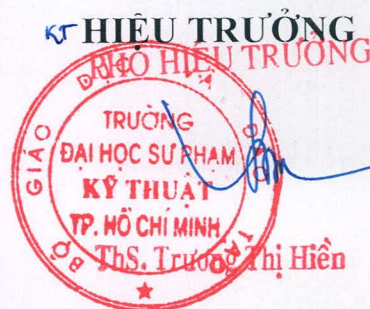 KT HIỆU TRƯỞNG
PHÓ HIỆU TRƯỞNG
BỘ GIÁO DỤC VÀ ĐÀO TẠO
TRƯỜNG
ĐẠI HỌC SƯ PHẠM
KỸ THUẬT
TP. HỒ CHÍ MINH
ThS. Trương Thị Hiền